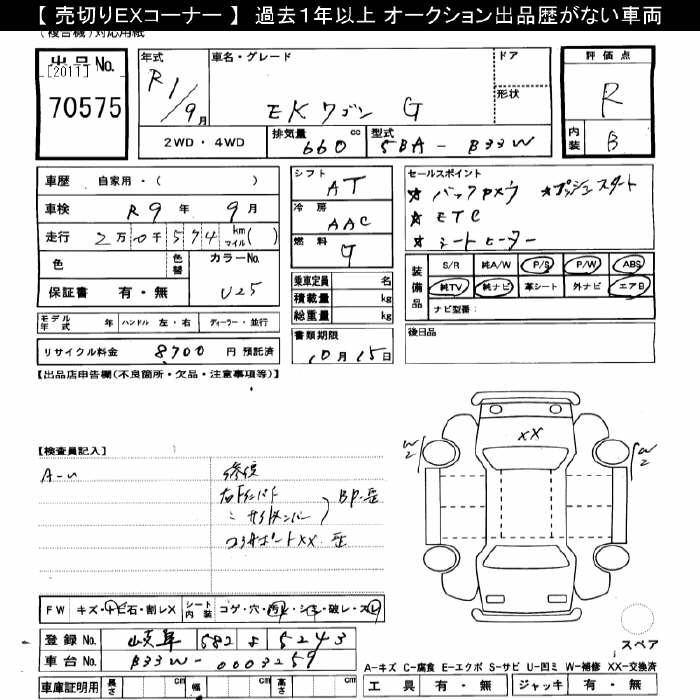 【 売切りEXコーナー 】 過去1年以上 オークション出品歴がない車両
(複合機)対応用紙
出品No.
[2011]
70575
年式
R1/9月
車名・グレード
EKワゴン G
ドア
形状
評価点
R
内装
B
2WD・4WD
排気量
660 cc
型式
5BA-B33W
車歴 自家用・( )
車検 R9年 9月
走行 2万0千574 km マイル( )
色
色替
カラーNo.
U25
保証書 有・無
シフト
AT
冷房
AAC
燃料
G
乗車定員 名
積載量 kg
総重量 kg
書類期限
10月15日
セールスポイント
★ バックカメラ ★プッシュスタート
★ ETC
★ シートヒーター
装備品
S/R 純A/W P/S P/W ABS
純TV 純ナビ 革シート 外ナビ エアB
ナビ型番:
後日品
モデル年式 年 ハンドル 左・右 ディーラー・並行
リサイクル料金 8700 円 預託済
【出品店申告欄(不良箇所・欠品・注意事項等)】
【検査員記入】
A-U
修復
BP歪
コアサポートXX 歪
XX
W2
W2
FW キズ・トビ石・割レX
シート内装 コゲ・穴・汚レ・シミ・破レ・スレ
登録No. 岐阜 582 す 5243
車台No. B33W-0003259
車庫証明用 長さ cm 幅 cm 高さ cm
スペア
A-キズ C-腐食 E-エクボ S-サビ U-凹ミ W-補修 XX-交換済
工具 有・無 ジャッキ 有・無